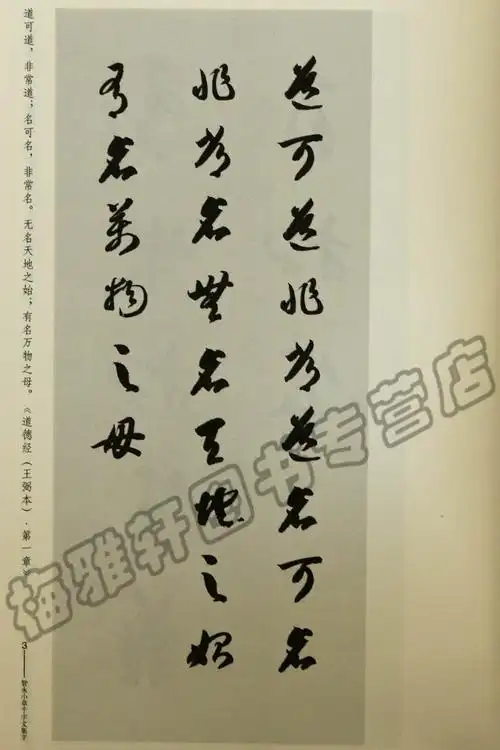 道可道非常道名可名
非常名無名天地之始
有名萬物之母
道可道，非常道；名可名，非常名。无名天地之始；有名万物之母。《道德经（王弼本）·第一章》
3——智永小草千字文集字
梅雅轩图书专营店